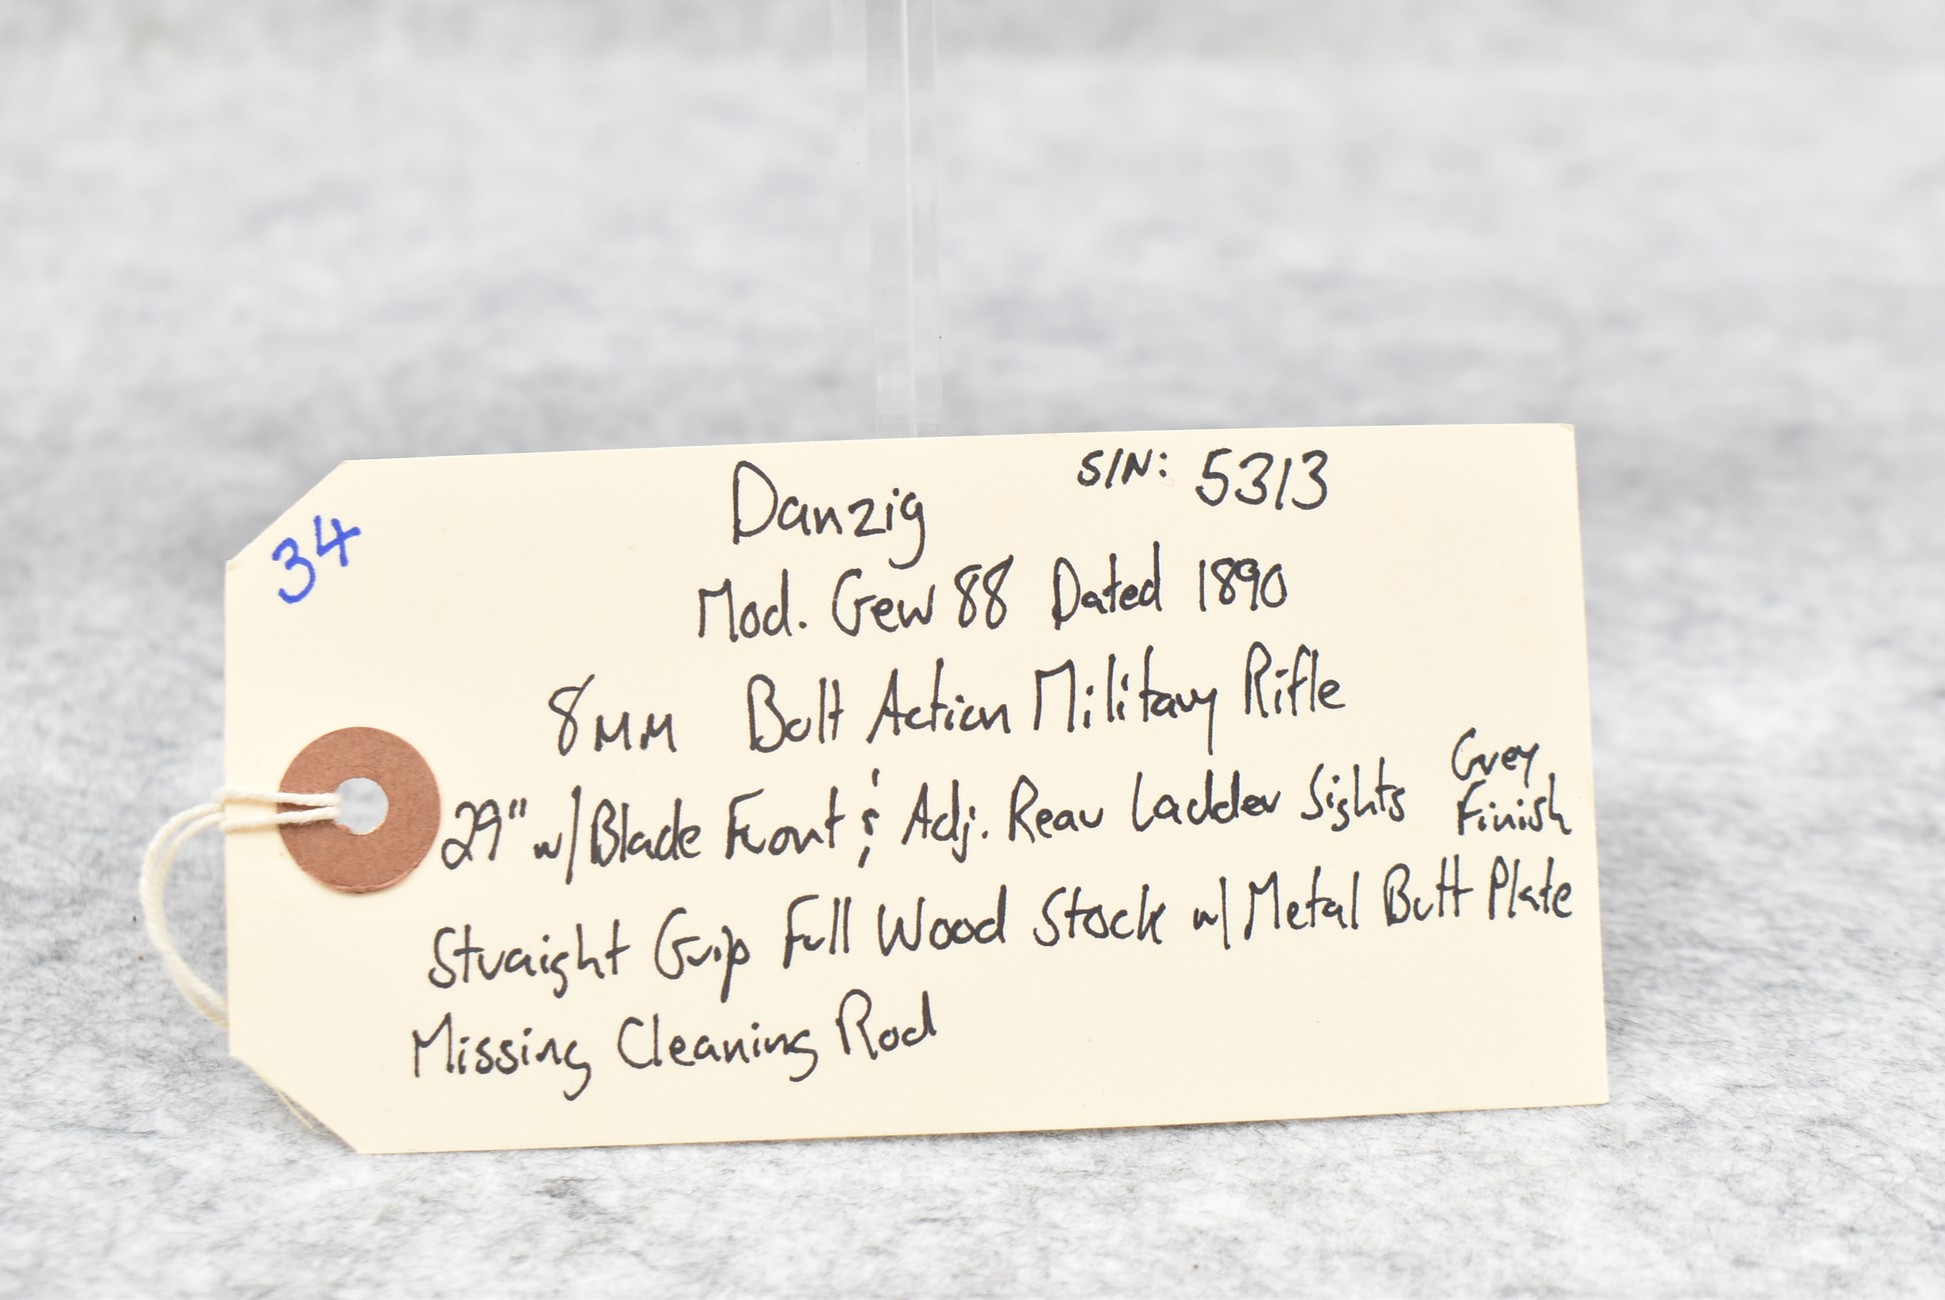 34
Danzig S/N: 5313
Mod. Gew 88 Dated 1890
8mm Bolt Action Military Rifle
29" w/ Blade Front & Adj. Rear Ladder Sights Grey Finish
Straight Grip Full Wood Stock w/ Metal Butt Plate
Missing Cleaning Rod